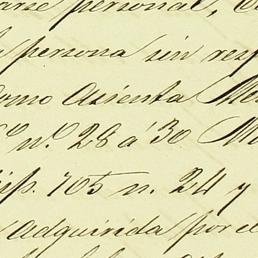 personal,
persona sin res
como asienta
nº. 28 á 30
disp. 705 n. 24 y
adquirida por el